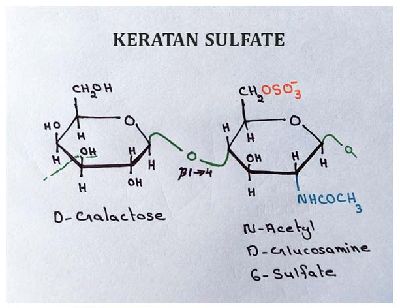 KERATAN SULFATE
CH2OH
CH2OSO3-
HO
O
H
OH
H
H
H
H
OH
O
β1→4
O
H
OH
H
H
H
H
O
NHCOCH3
D-Galactose
N-Acetyl
D-Glucosamine
6-Sulfate